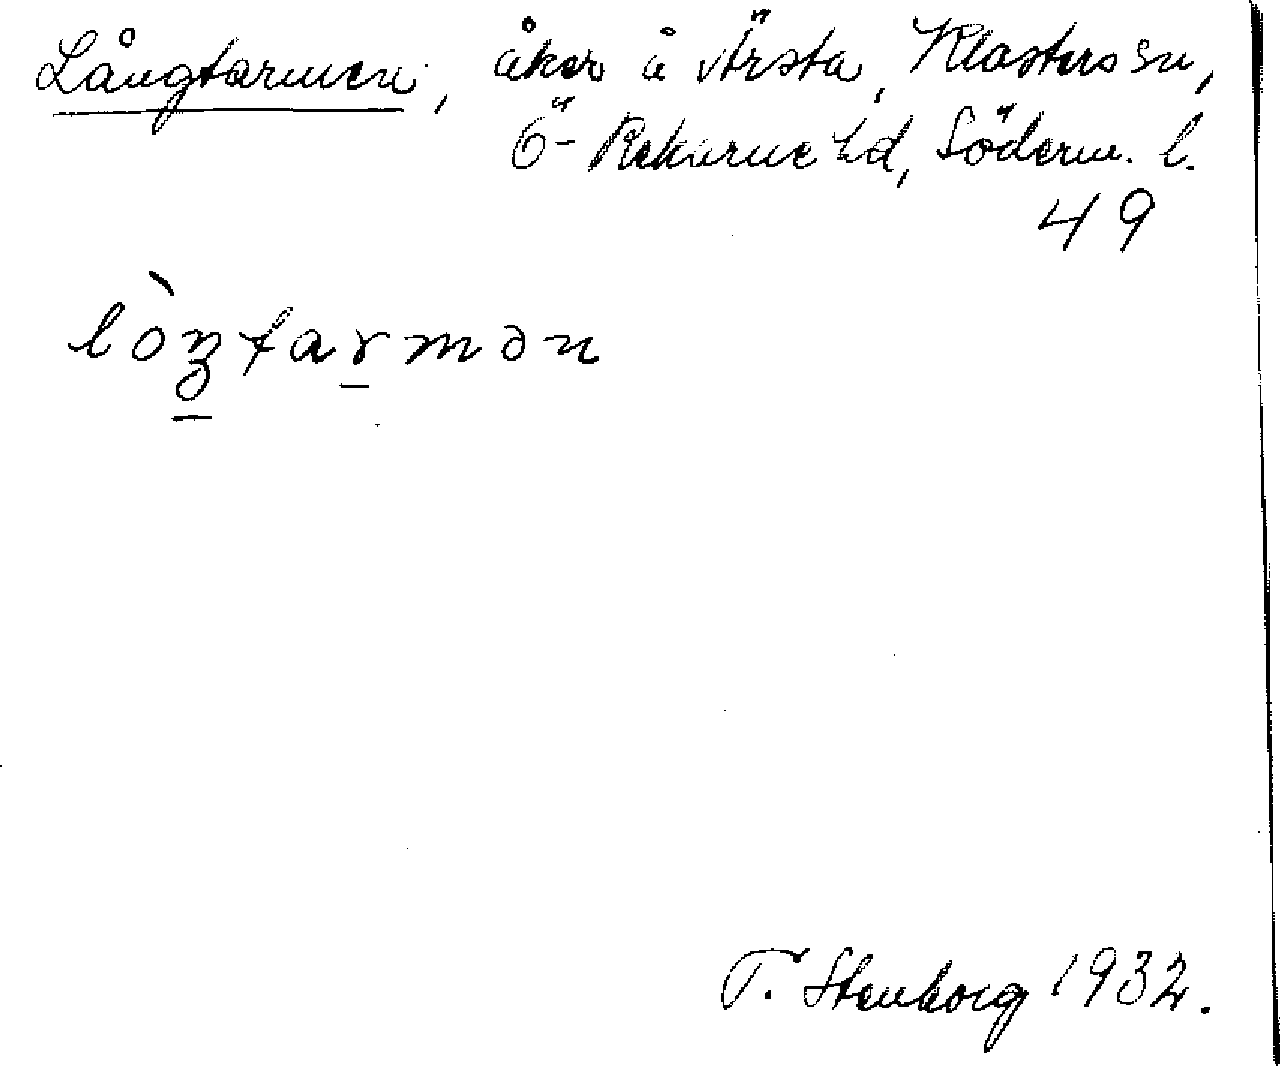 Långtarmen, åker å Ärsta, Klosters sn,
Ö-Rekarne hd, Söderm. l.
49
lòŋtarmən
T. Stenborg 1932.